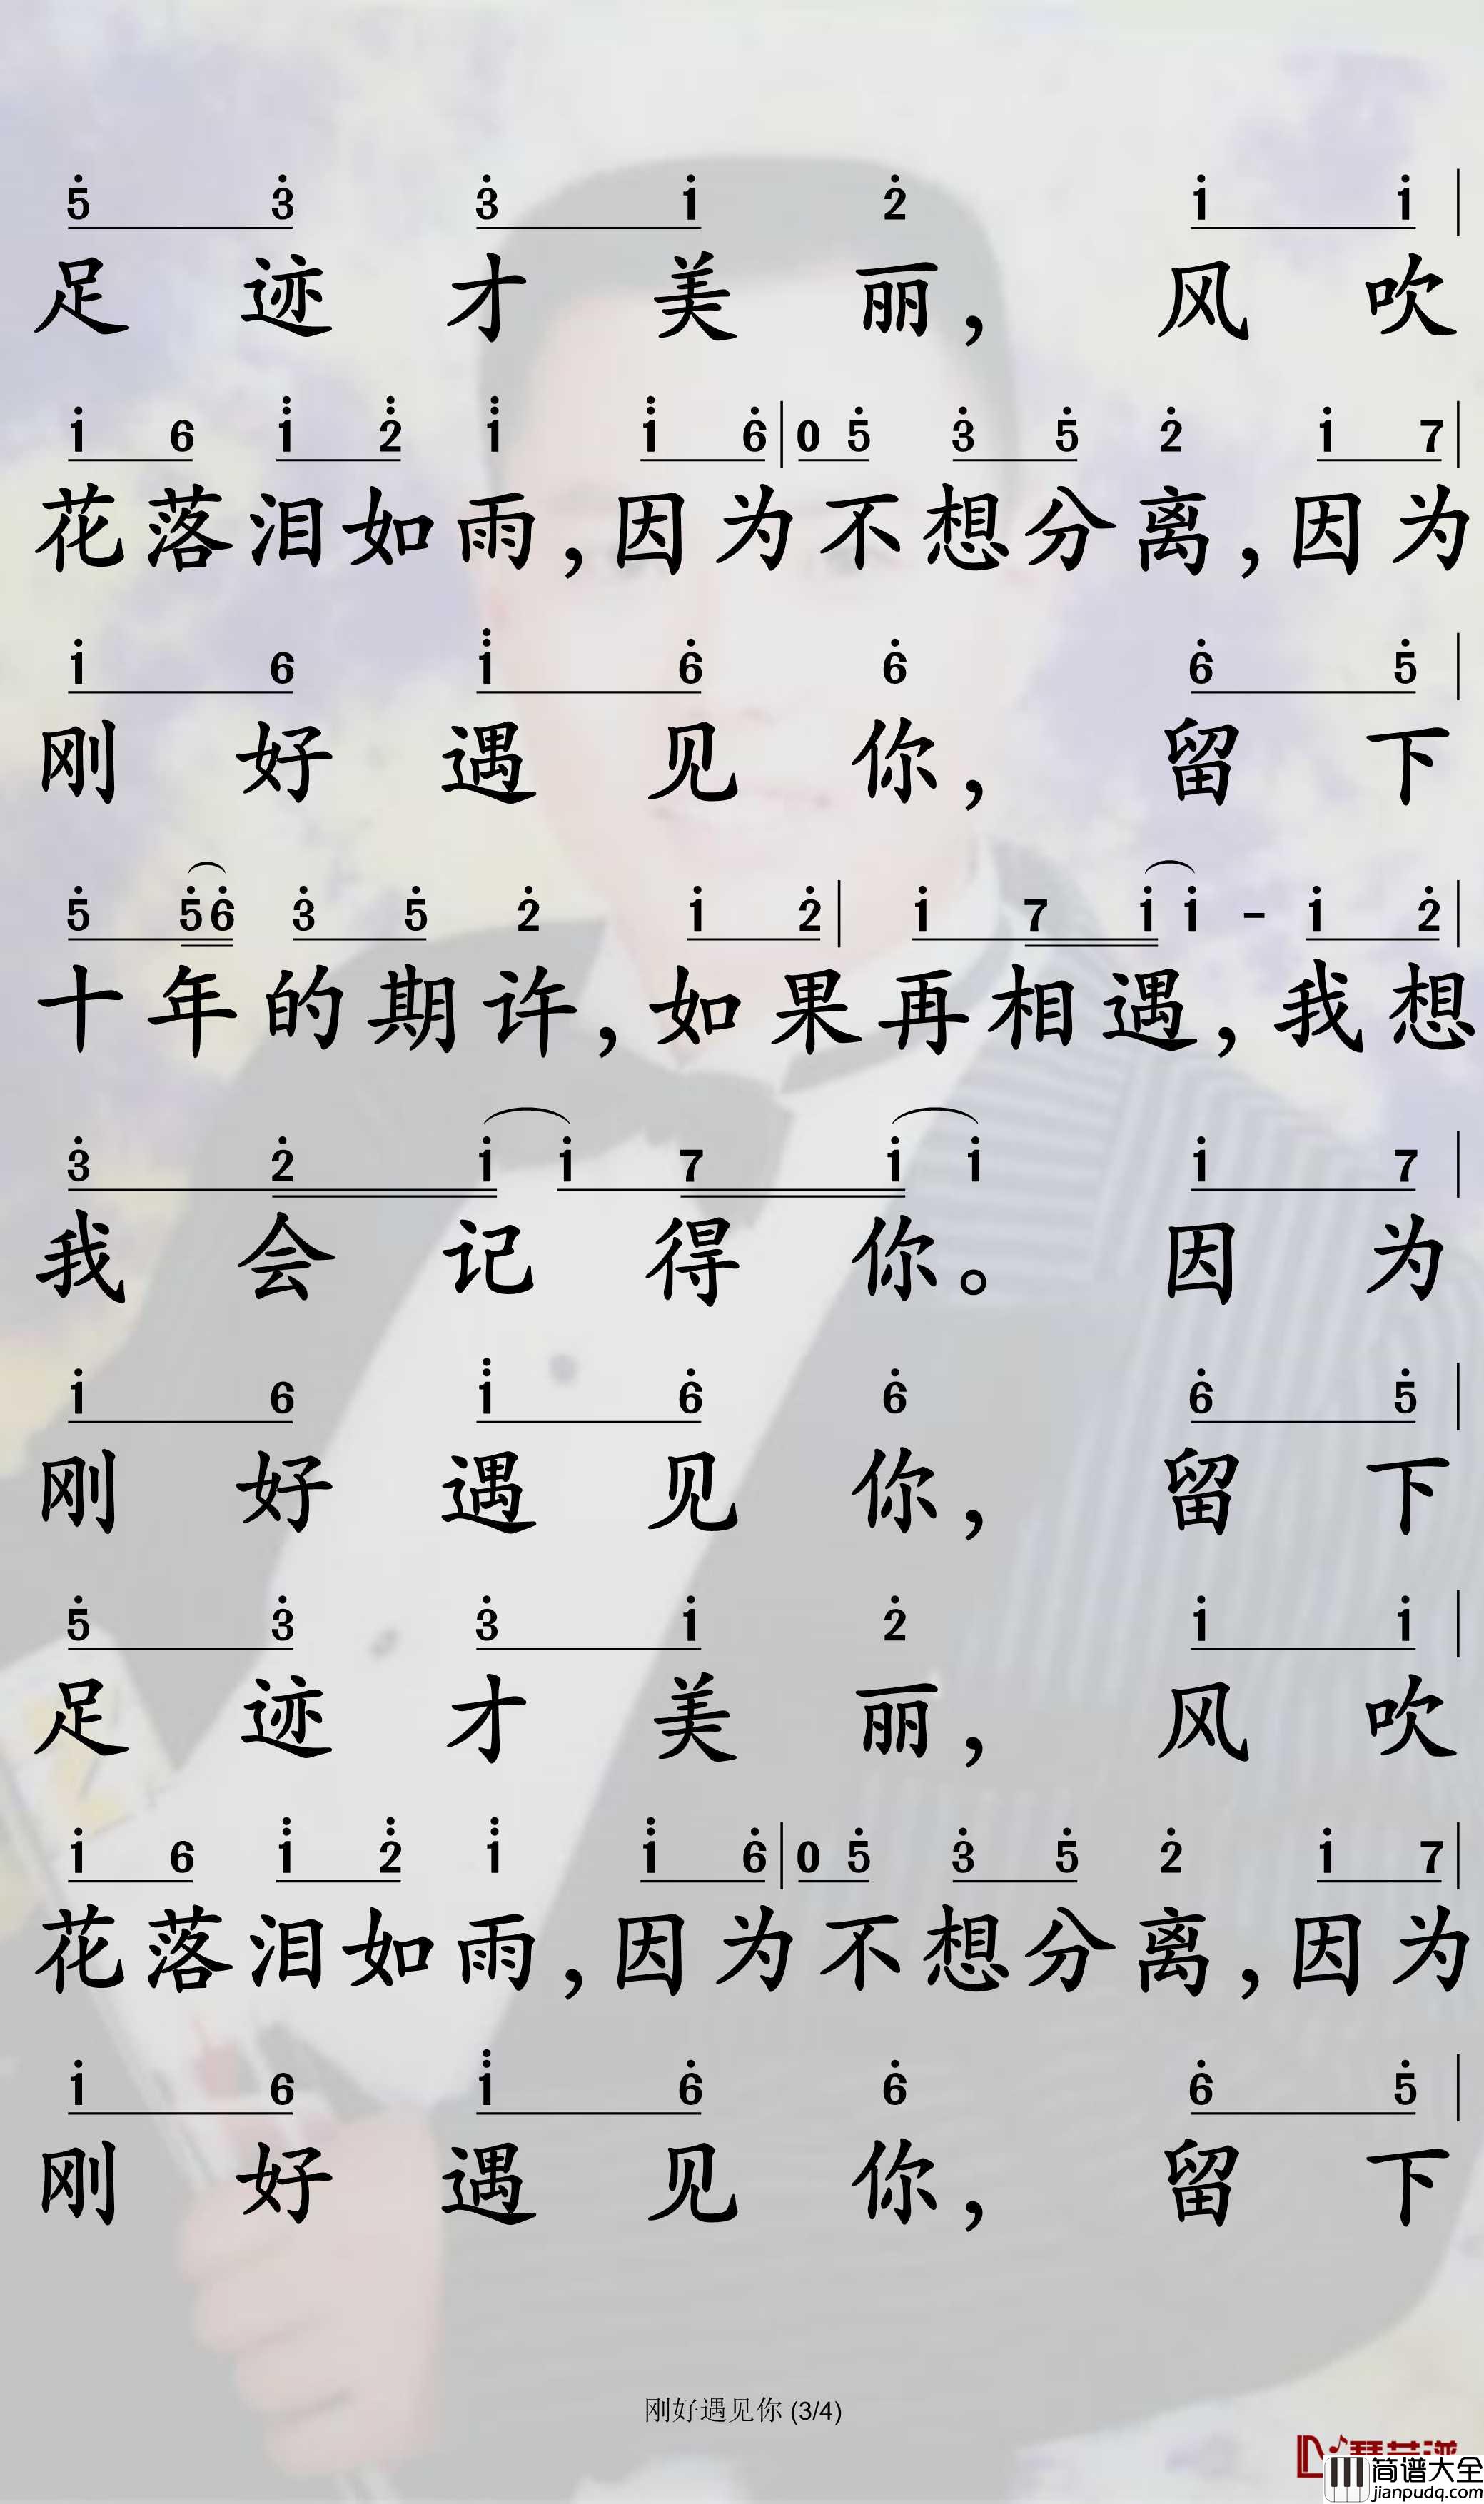 5̇ 3̇ 3̇ 1̇ 2̇ 1̇ 1̇ |
足迹才美丽，风吹
1̇ 6 1̈ 2̈ 1̈ 1̈ 6̇ | 0 5̇ 3̇ 5̇ 2̇ 1̇ 7 |
花落泪如雨，因为不想分离，因为
1̇ 6 1̈ 6̇ 6̇ 6̇ 5̇ |
刚好遇见你，留下
5̇ 5̇ 6̇ 3̇ 5̇ 2̇ 1̇ 2̇ | 1̇ 7 1̇ 1̇ - 1̇ 2̇ |
十年的期许，如果再相遇，我想
3̇ 2̇ 1̇ 1̇ 7 1̇ 1̇ 1̇ 7 |
我会记得你。因为
1̇ 6 1̈ 6̇ 6̇ 6̇ 5̇ |
刚好遇见你，留下
5̇ 3̇ 3̇ 1̇ 2̇ 1̇ 1̇ |
足迹才美丽，风吹
1̇ 6 1̈ 2̈ 1̈ 1̈ 6̇ | 0 5̇ 3̇ 5̇ 2̇ 1̇ 7 |
花落泪如雨，因为不想分离，因为
1̇ 6 1̈ 6̇ 6̇ 6̇ 5̇ |
刚好遇见你，留下
刚好遇见你 (3/4)
简谱大全
jianpudq.com